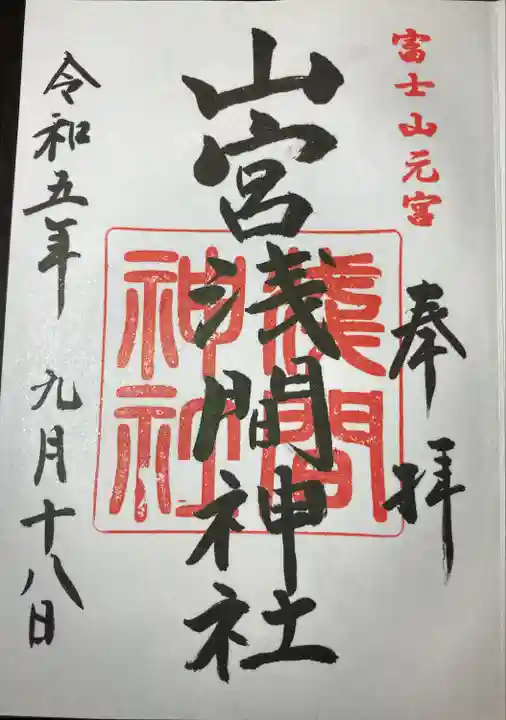 富士山元宮
奉拝
山宮浅間神社
浅間
神社
令和五年 九月十八日